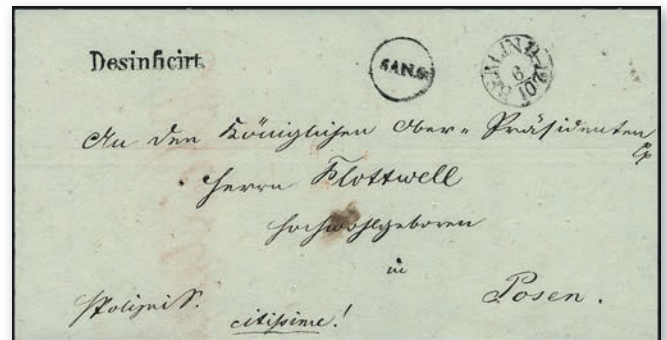 Desinficirt.
SAN.S.
BERLIN 12-1
6
10
An den Königlichen Ober-Präsidenten
Herrn Flottwell
Hochwohlgeboren
in
Posen.
citissime!